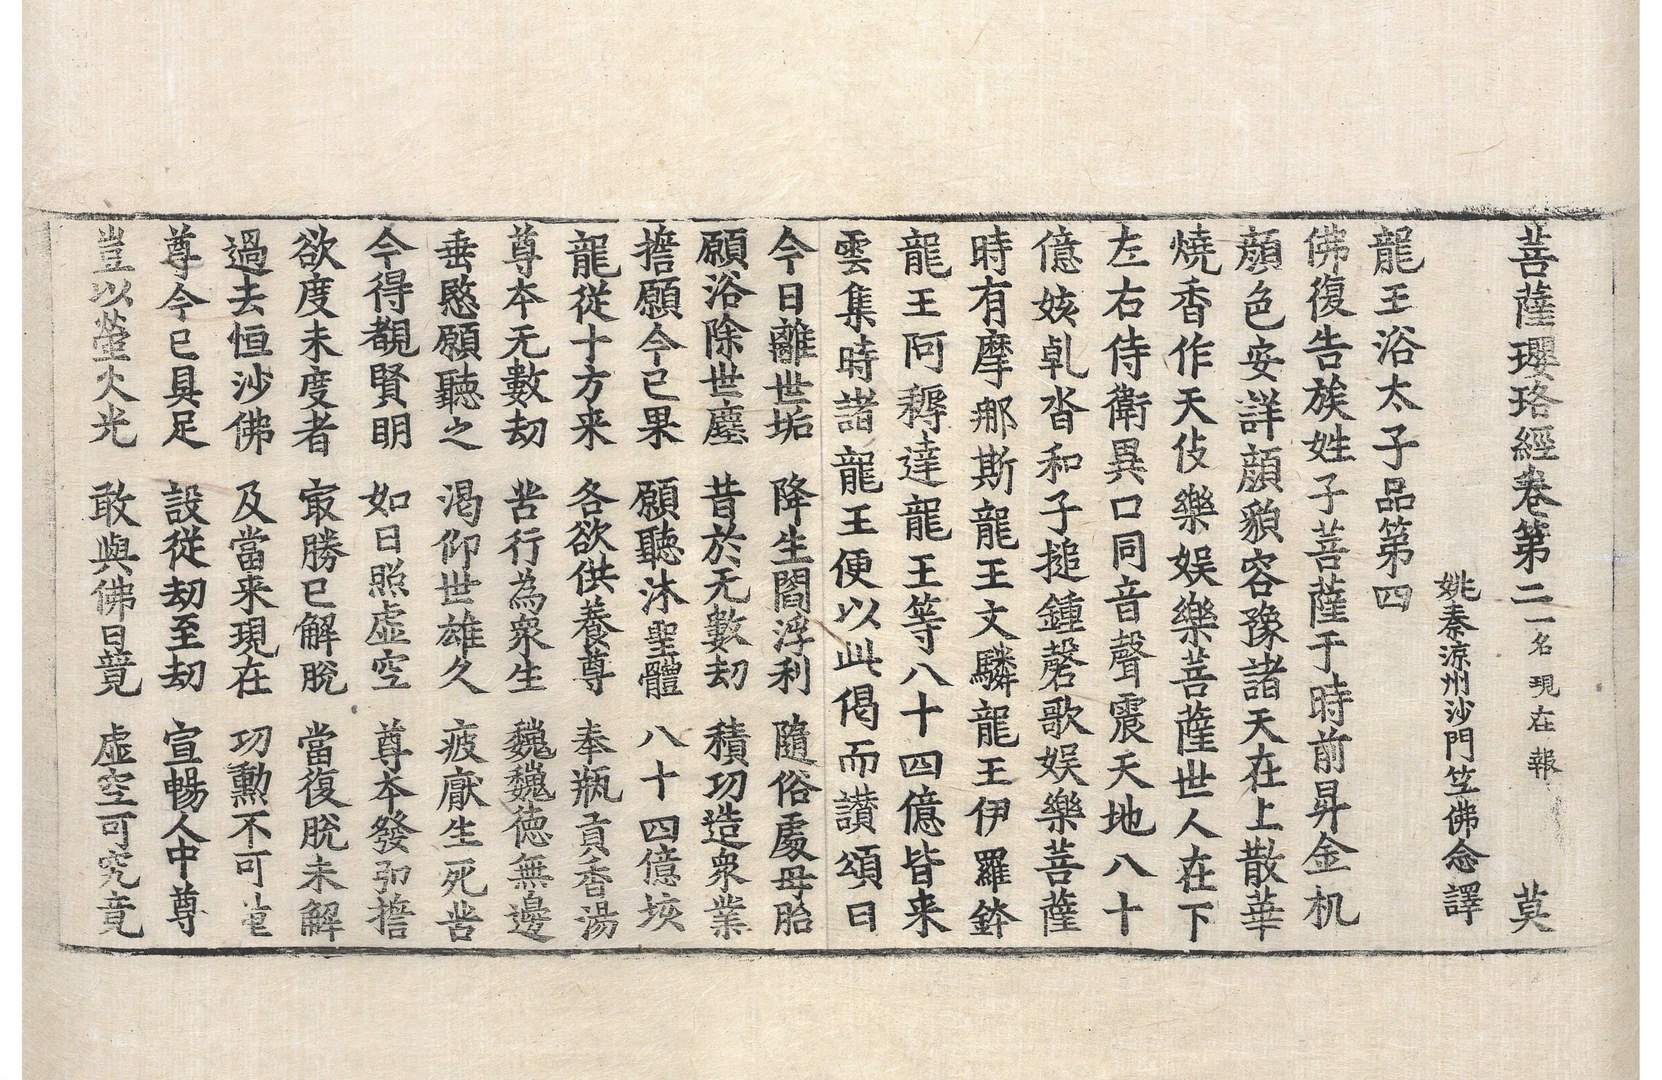 菩薩瓔珞經卷第二 一名現在報 莫
姚秦涼州沙門竺佛念譯
龍王浴太子品第四
佛復告族姓子菩薩于時前昇金机
顏色安詳顏貌容豫諸天在上散華
燒香作天伎樂娛樂菩薩世人在下
左右侍衛異口同音聲震天地八十
億姟乹沓和子搥鍾磬歌娛樂菩薩
時有摩那斯龍王文驎龍王伊羅鉢
龍王阿耨達龍王等八十四億皆来
雲集時諸龍王便以此偈而讃頌曰
今日離世垢 降生閻浮利 隨俗處母胎
願浴除世塵 昔於无數劫 積功造衆業
擔願今已果 願聽沐聖體 八十四億垓
龍從十方来 各欲供養尊 奉瓶貢香湯
尊本无數劫 苦行為衆生 巍巍徳無邊
垂愍願聽之 渴仰世雄久 疲厭生死苦
今得覩賢明 如日照虛空 尊本發弘擔
欲度未度者 㝡勝已解脫 當復脫未解
過去恒沙佛 及當来現在 功勳不可
尊今已具足 設從劫至劫 宣暢人中尊
豈以螢火光 敢與佛日競 虛空可究竟